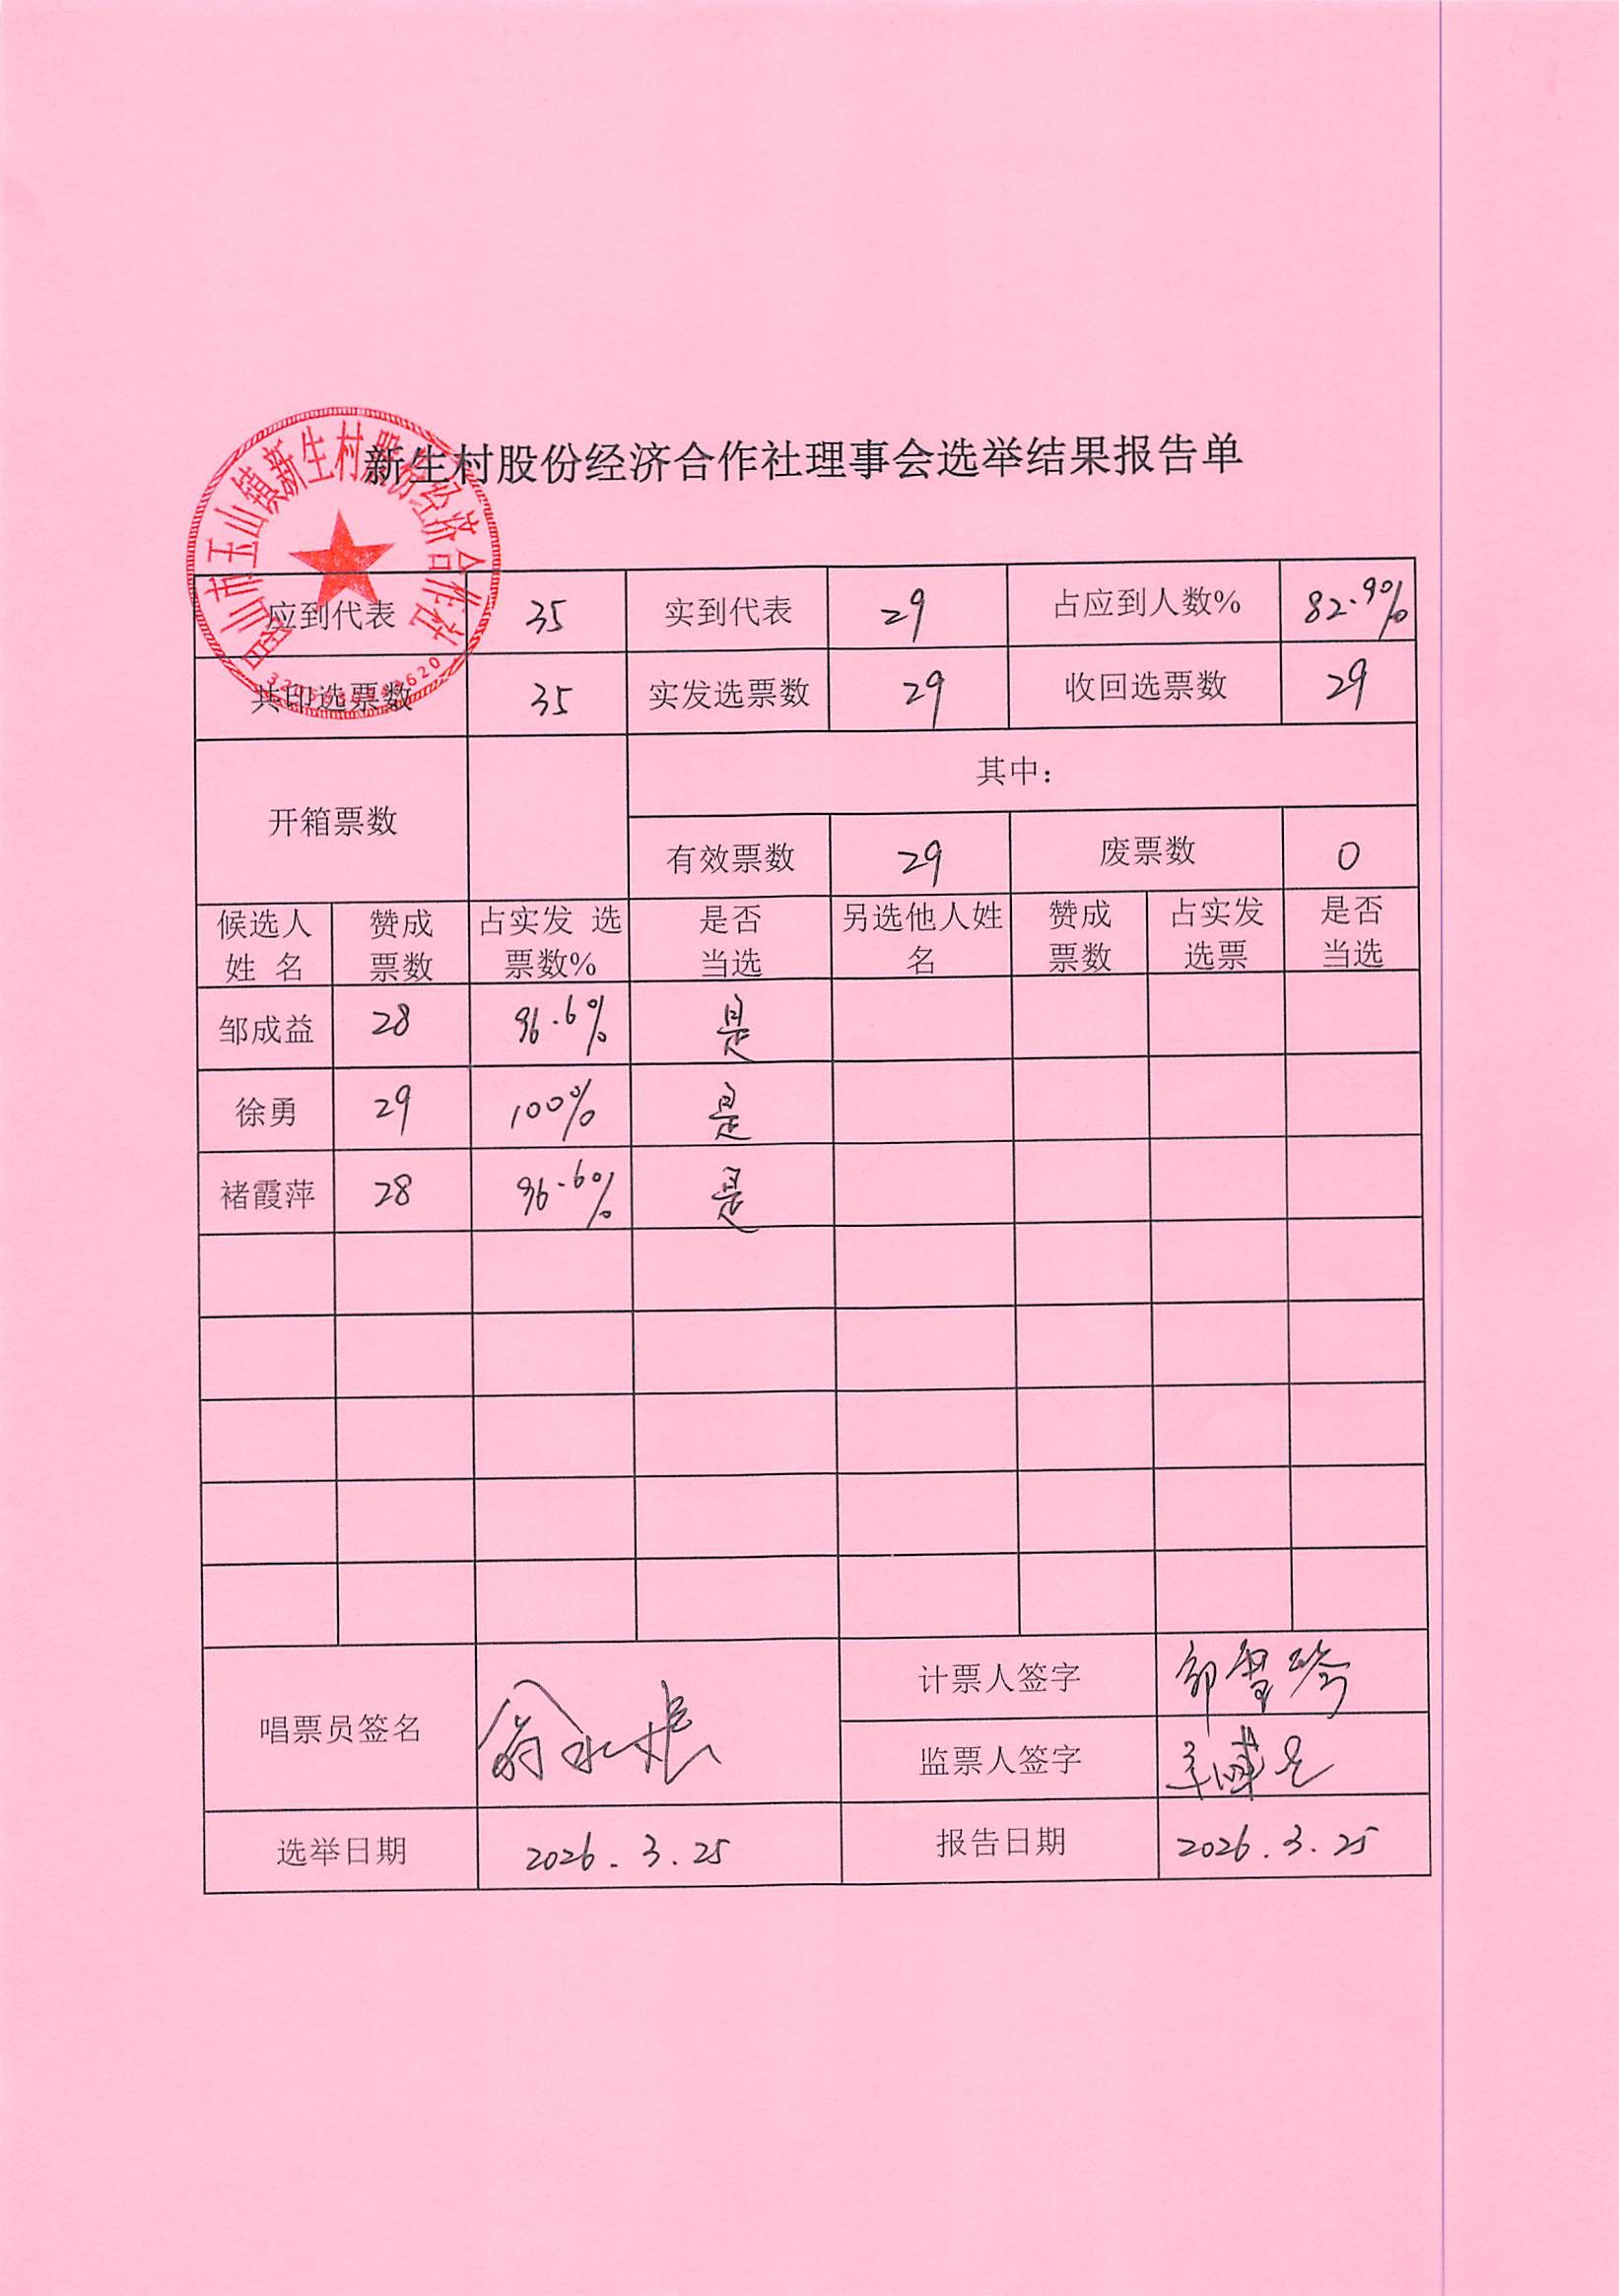 新生村股份经济合作社理事会选举结果报告单
昆山市玉山镇新生村股份经济合作社
应到代表 35 实到代表 29 占应到人数% 82.9%
共印选票数 35 实发选票数 29 收回选票数 29
开箱票数 其中：
有效票数 29 废票数 0
候选人 赞成 占实发 选 是否 另选他人姓 赞成 占实发 是否
姓 名 票数 票数% 当选 名 票数 选票 当选
邹成益 28 96.6% 是
徐勇 29 100% 是
褚霞萍 28 96.6% 是
唱票员签名
计票人签字
监票人签字
选举日期 2026.3.25 报告日期 2026.3.25